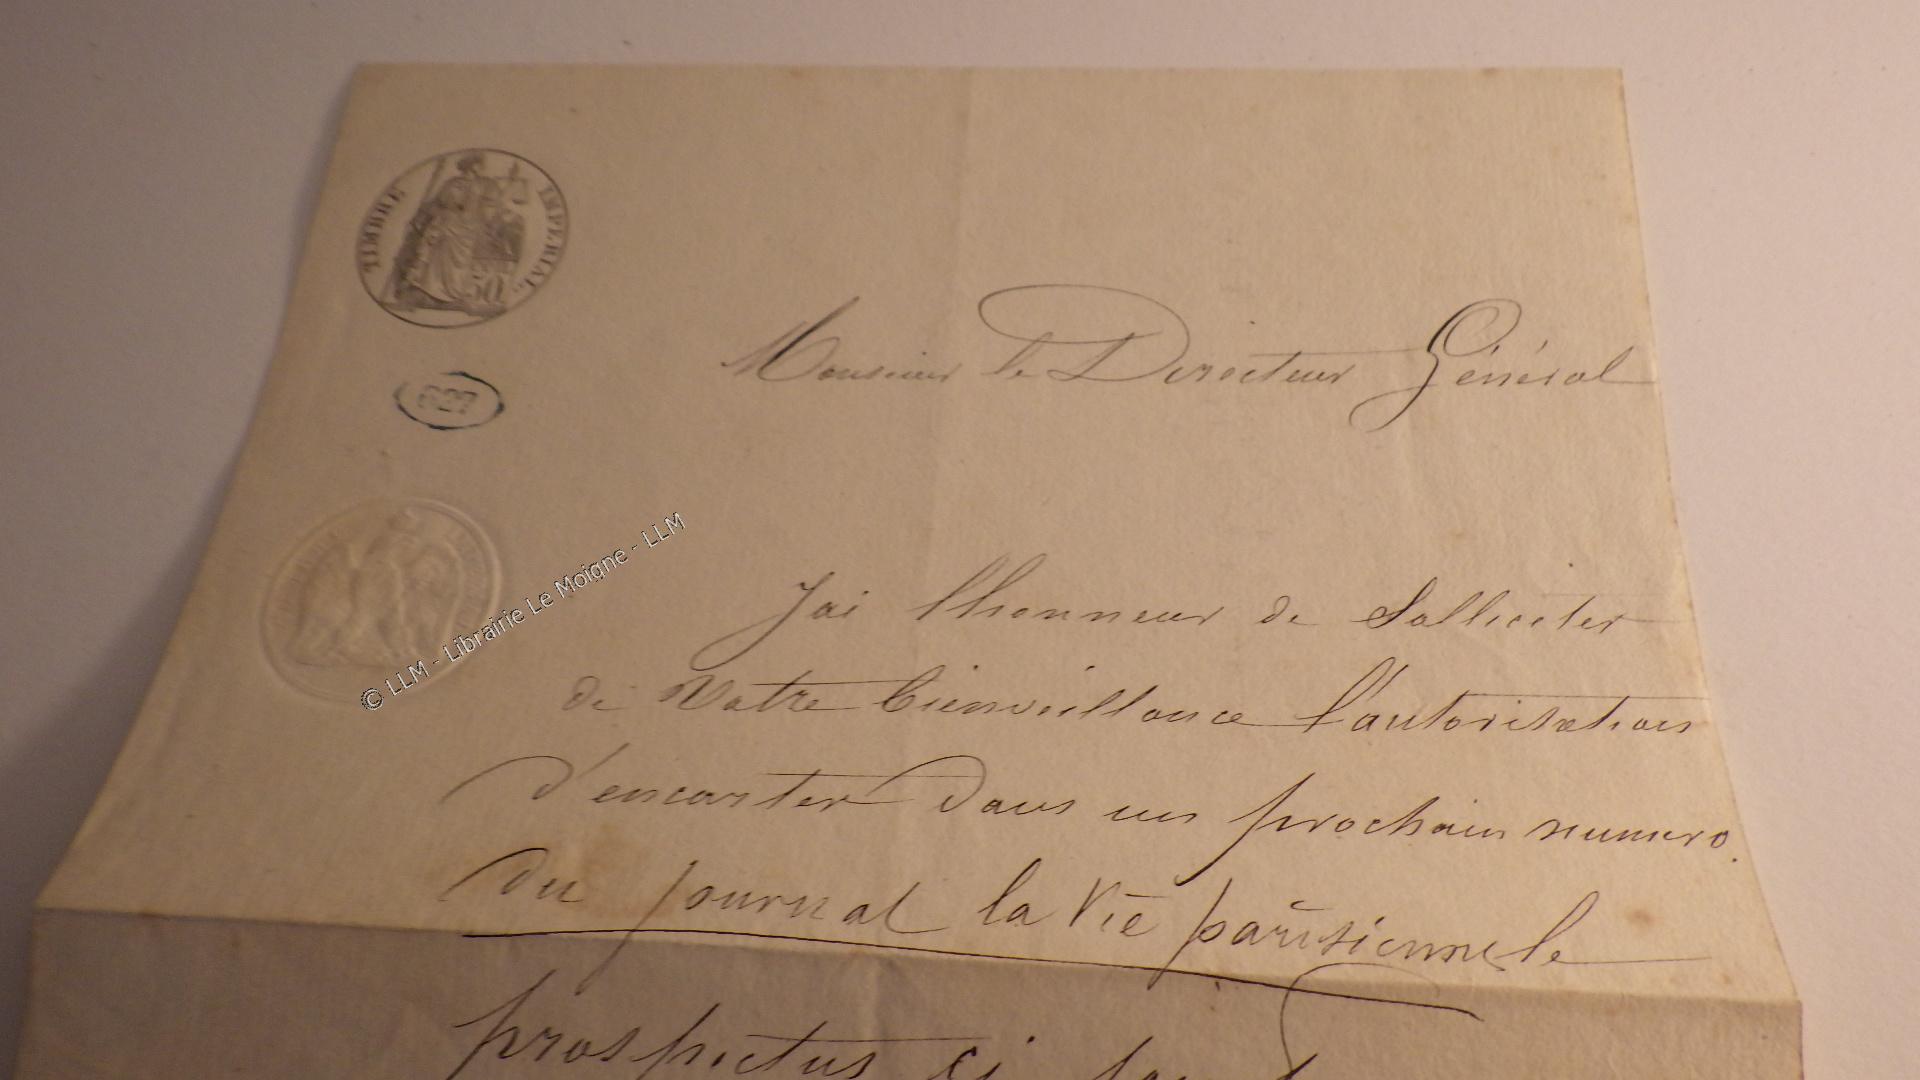 TIMBRE IMPERIAL
50
627
Monsieur le Directeur Général
© LLM - Librairie Le Moigne - LLM
Jai lhonneur de Solliciter
de Votre bienveillance l'autorisation
d'encarter dans un prochain numero.
du journal la Vie parisienne le
prospectus ci